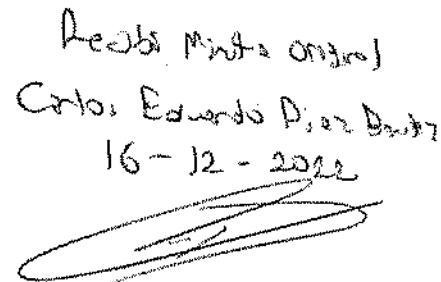 Recibi Minuta original
Carlos Eduardo Diaz
16-12-2022